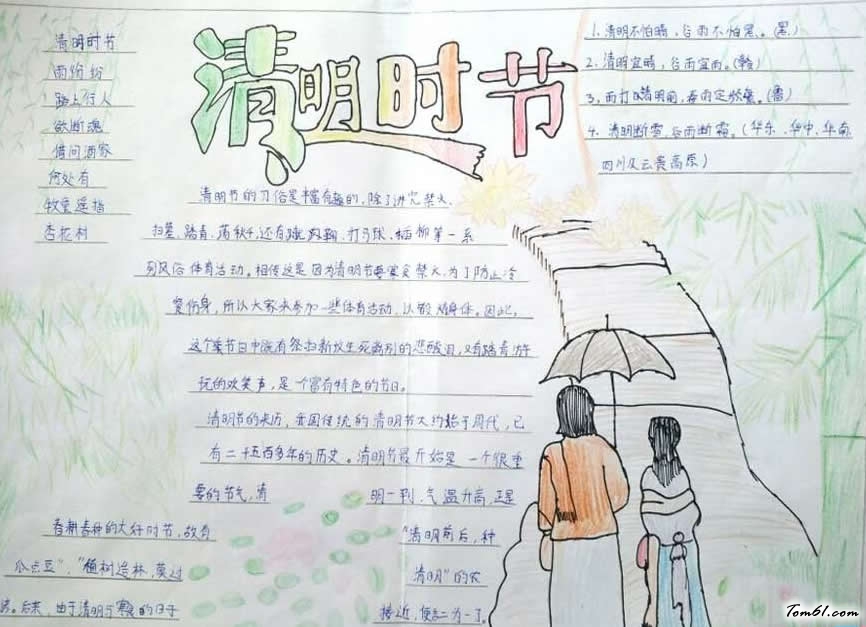 清明时节
清明时节
雨纷纷
路上行人
欲断魂
借问酒家
何处有
牧童遥指
杏花村
1、清明不怕晴,谷雨不怕黑。(黑)
2、清明宜晴,谷雨宜雨。(赣)
3、雨打清明前,春雨定频繁。(鲁)
4、清明断雪,谷雨断霜。(华东、华中、华南、
四川及云贵高原)
清明节的习俗是丰富有趣的,除了讲究禁火、
扫墓,踏青、荡秋千,还有蹴鞠、打马球、插柳等一系
列风俗体育活动。相传这是因为清明节要寒食禁火,为了防止冷
餐伤身,所以大家来参加一些体育活动,以锻炼身体。因此,
这个节日中既有祭扫新坟生死离别的悲酸泪,又有踏青游
玩的欢笑声,是一个富有特色的节日。
清明节的来历,我国传统的清明节大约始于周代,已
有二千五百多年的历史。清明节最开始是一个很重
要的节气,清
明一到,气温升高,正是
春耕春种的大好时节,故有
"清明前后,种
瓜点豆"、"植树造林,莫过
清明"的农
谚。后来,由于清明与寒食的日子
接近,便合二为一了。
Tom61.com